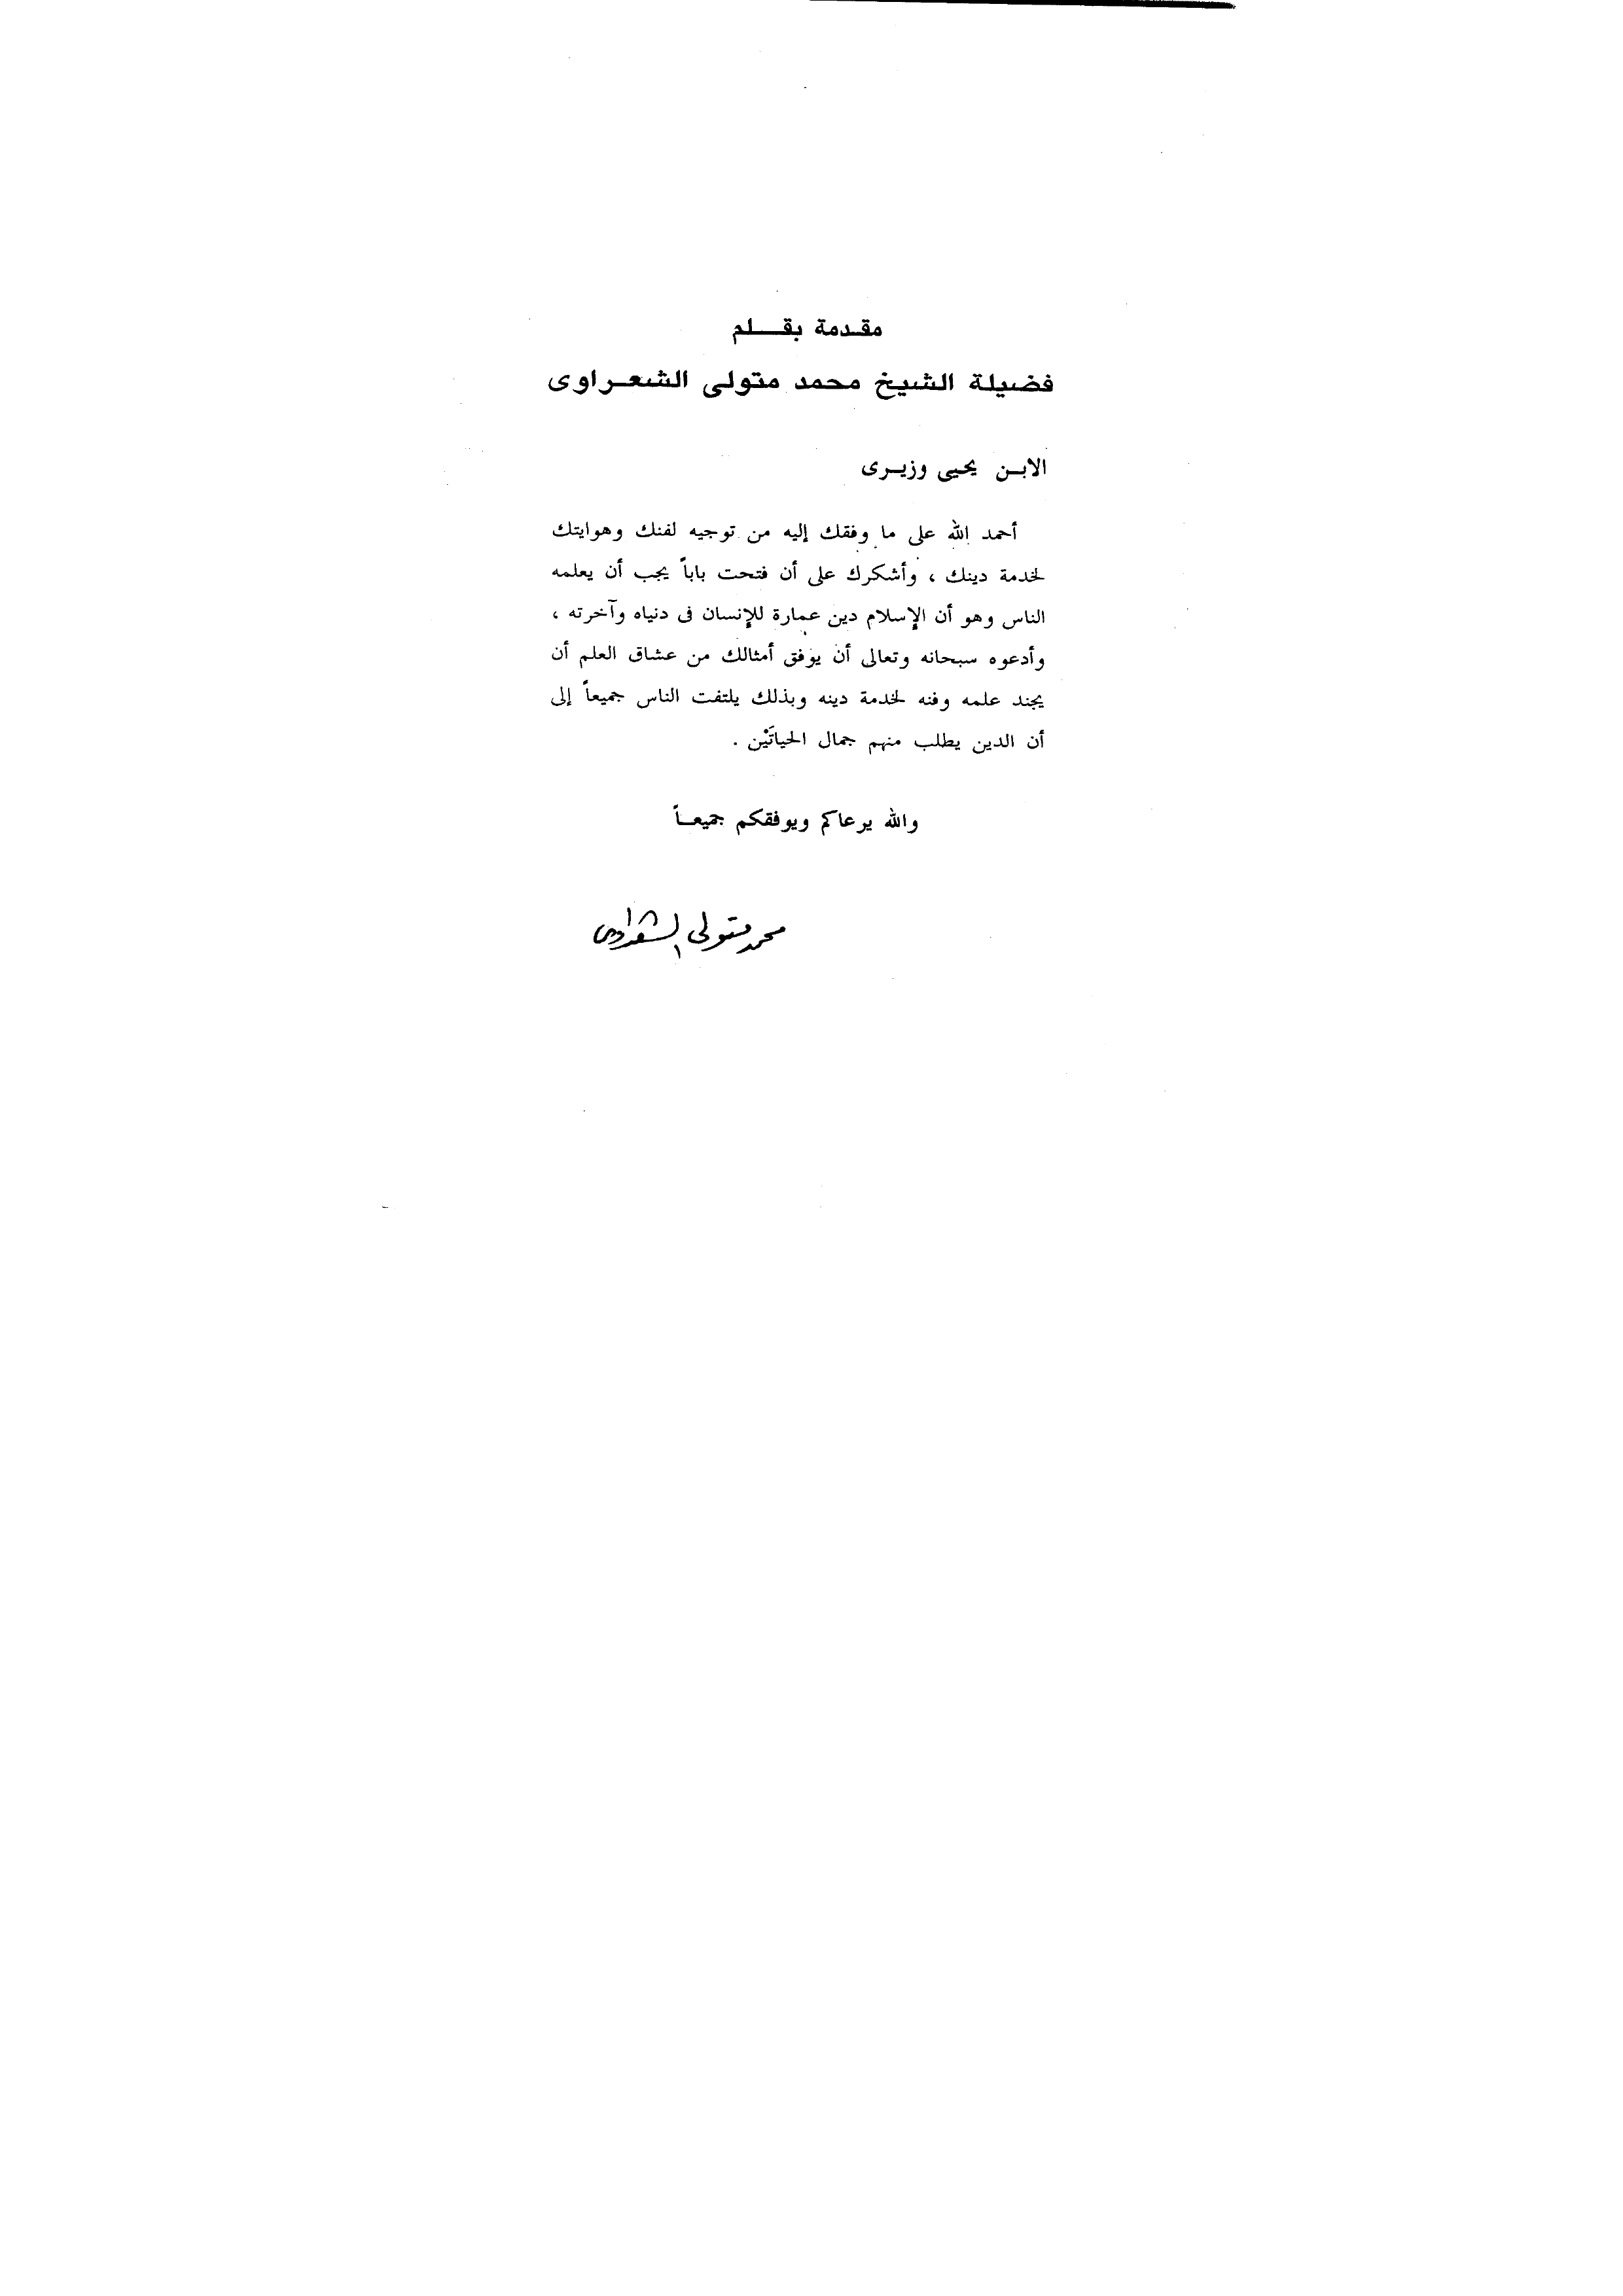 مقدمة بقلم
فضيلة الشيخ محمد متولى الشعراوى
الابن يحيى وزيرى
أحمد الله على ما وفقك إليه من توجيه لفنك وهوايتك
لخدمة دينك ، وأشكرك على أن فتحت باباً يجب أن يعلمه
الناس وهو أن الإسلام دين عمارة للإنسان فى دنياه وآخرته ،
وأدعوه سبحانه وتعالى أن يوفق أمثالك من عشاق العلم أن
يجند علمه وفنه لخدمة دينه وبذلك يلتفت الناس جميعاً إلى
أن الدين يطلب منهم جمال الحياتَيْن .
والله يرعاكم ويوفقكم جميعاً
محمد متولى الشعراوى